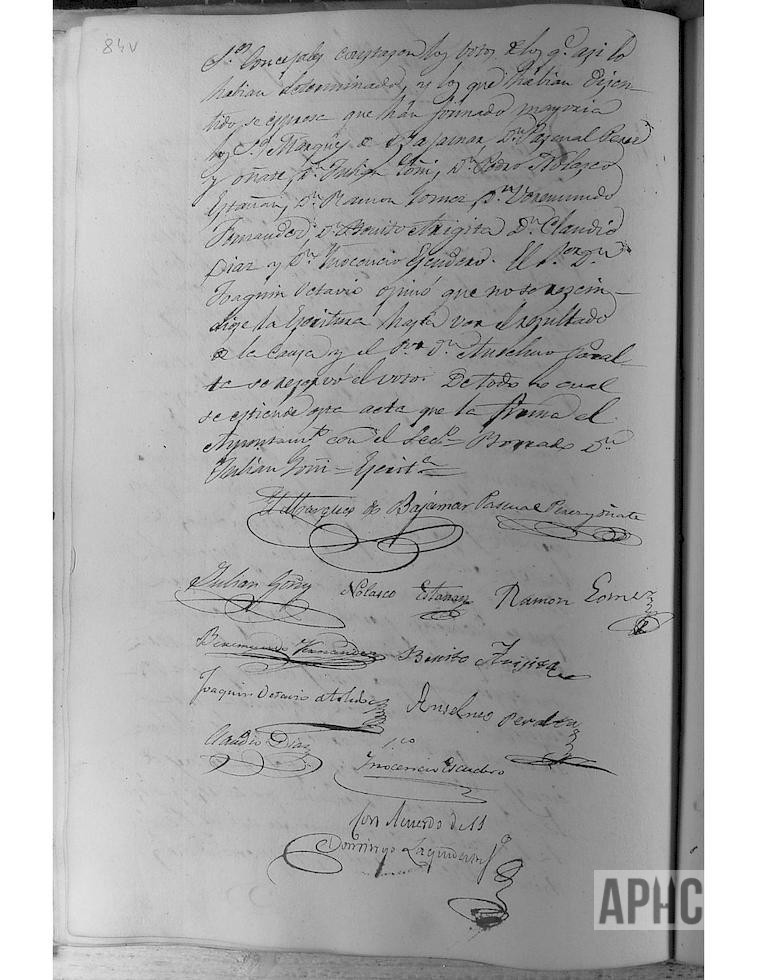 84v
S.es Concejales constasen los votos de los q.e asi lo
habian determinado, y los que habian disen-
tido se espresa que han formado mayoria
los S.es Marques de Bajamar, D.n Pascual Perez
y oñate, D.n Julian Goñi, D.n Pedro Nolasco
Estañan, D.n Ramon Gomez D.n Veremundo
Fernandez, D.n Benito Arigita D.n Claudio
Diaz y D.n Inocencio Escudero. El S.or D.n
Joaquin Octavio opinó que no se rescin-
diese la Escritura hasta ver el resultado
de la Causa y el S.or D.n Anselmo Peral-
ta se reservó el voto. De todo lo cual
se estiende esta acta que la firma el
Ayuntam.to con el Sec.o Borrado D.n
Julian Goñi =
El Marques de Bajamar Pascual Perez y oñate
Julian Goñy Nolasco Estañan Ramon Gomez
Beremundo Fernandez Benito Arijita
Joaquin Octavio de Toledo Anselmo Peralta
Claudio Diaz
Inocencio Escudero
Con Acuerdo de SS
Domingo
APHC